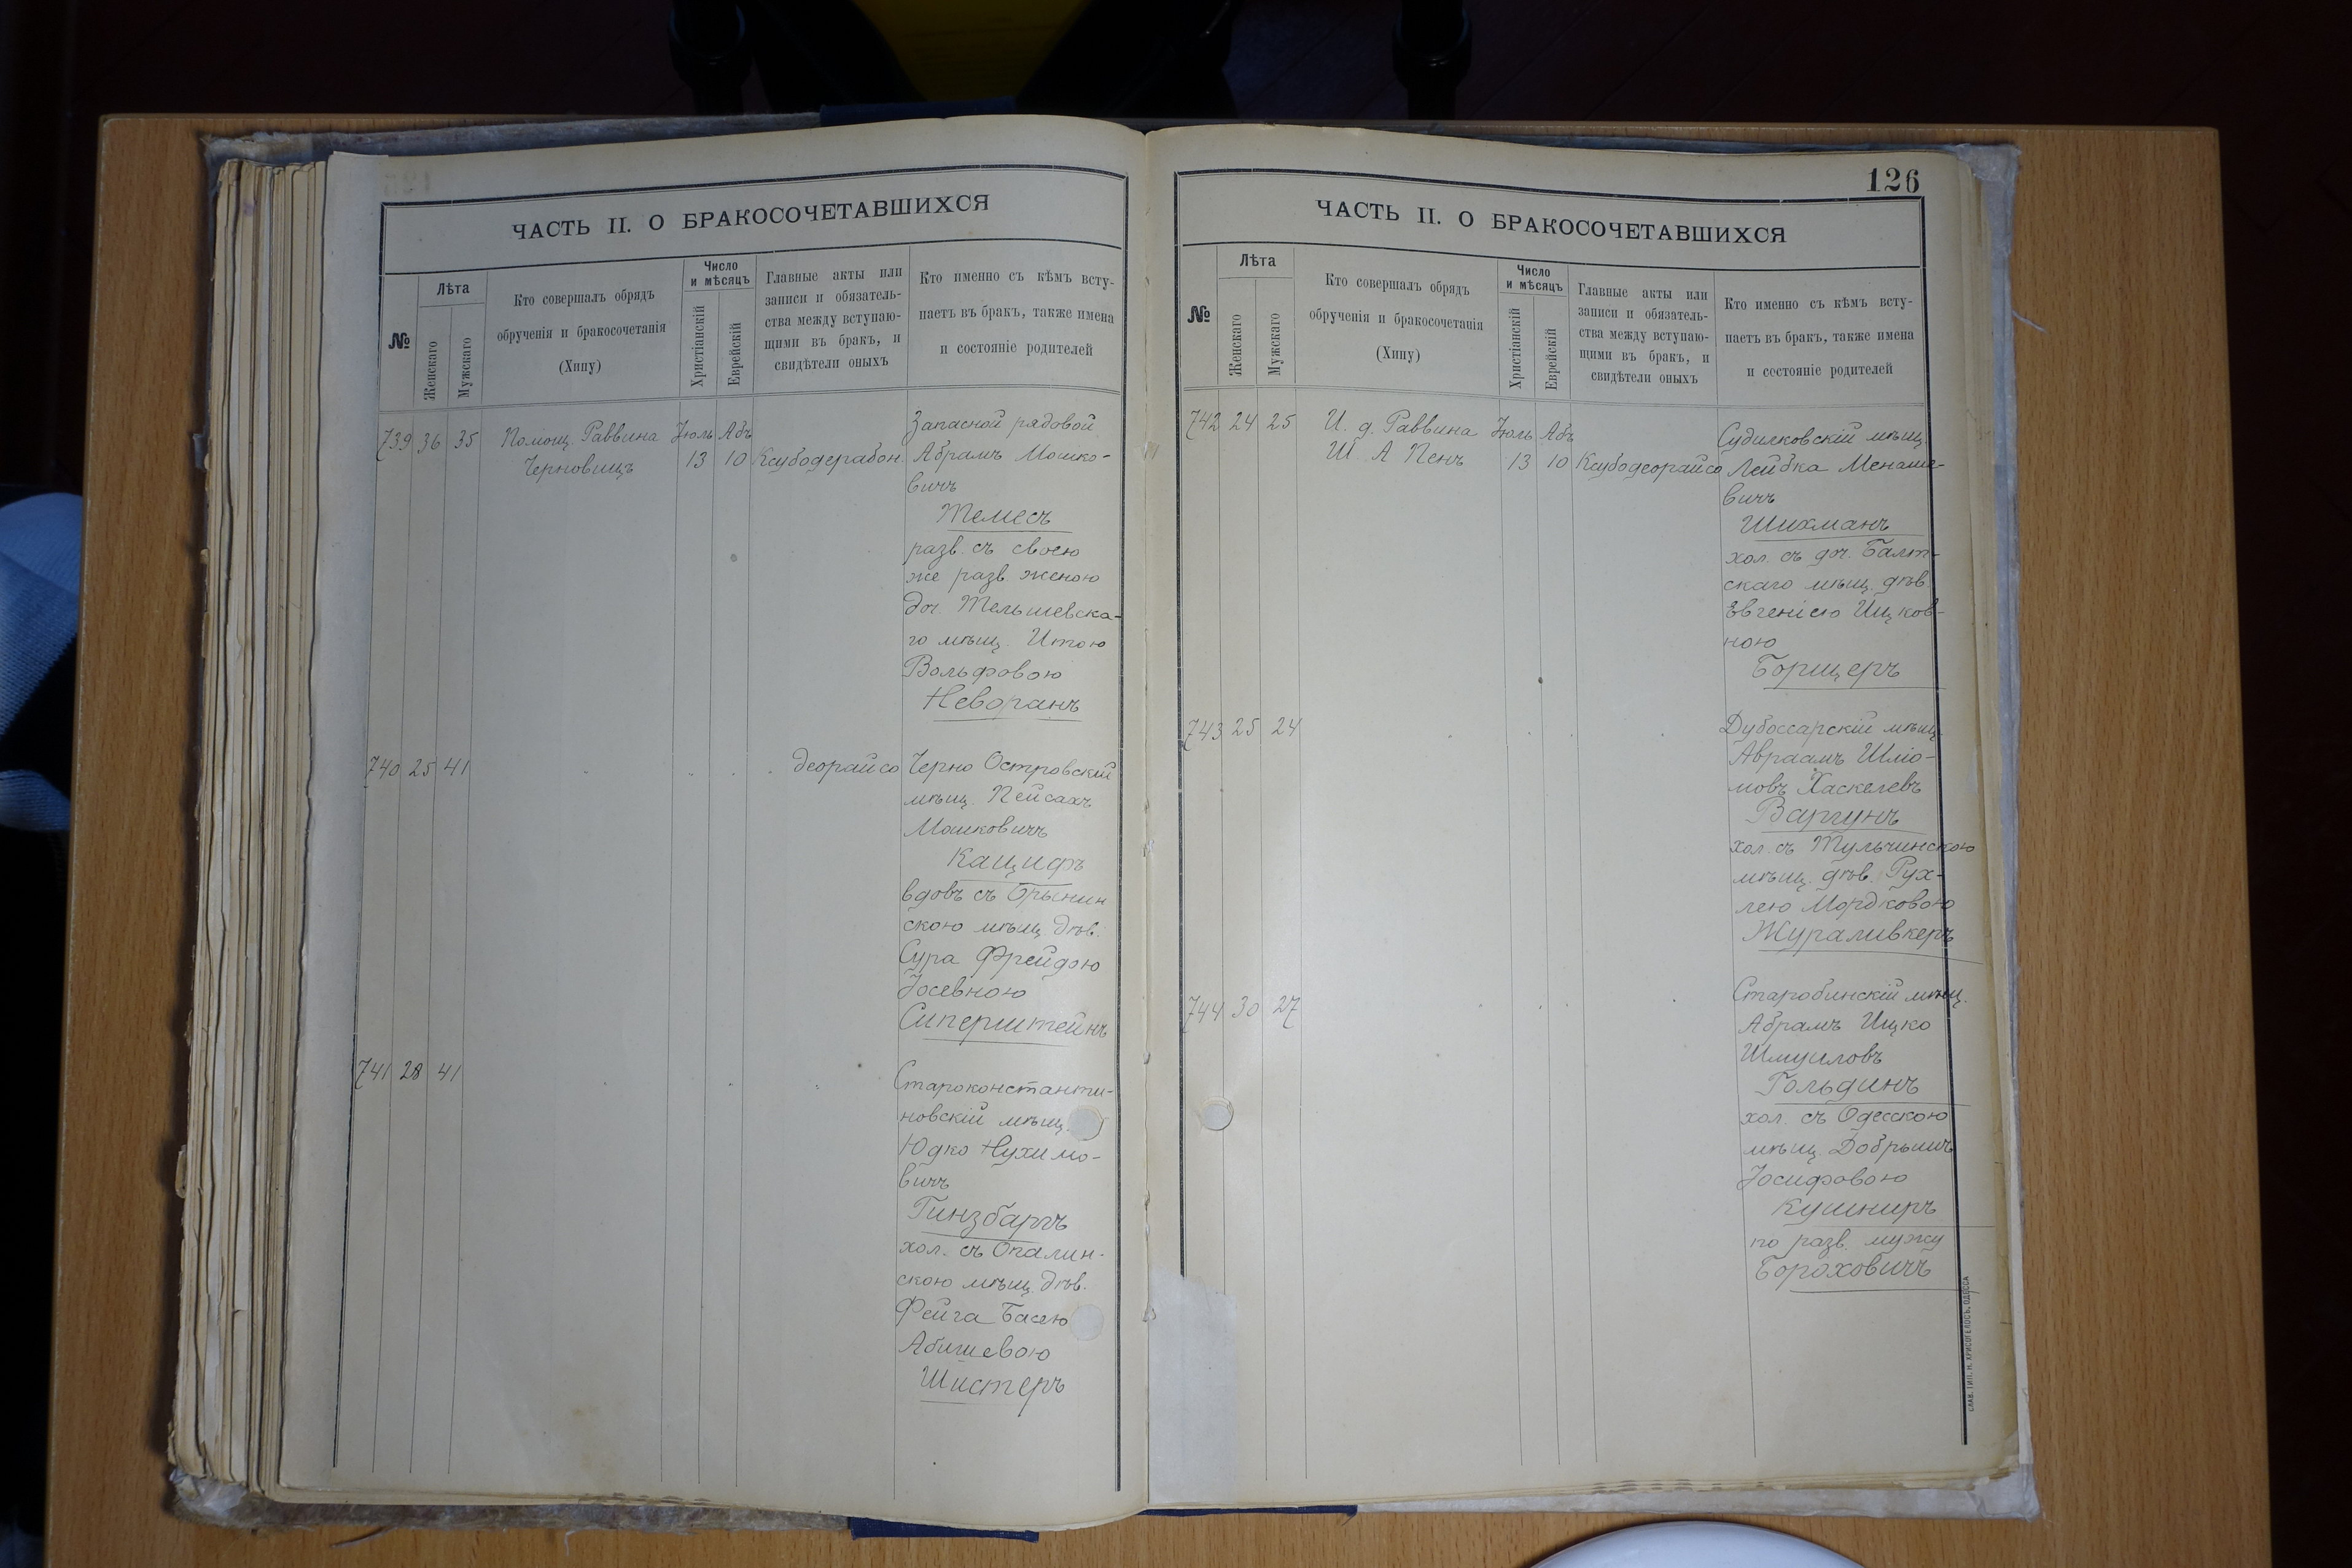 ЧАСТЬ II. О БРАКОСОЧЕТАВШИХСЯ
№
Лѣта
Женскаго
Мужскаго
Кто совершалъ обрядъ
обрученія и бракосочетанія
(Хипу)
Число
и мѣсяцъ
Христіанскій
Еврейскій
Главные акты или
записи и обязатель-
ства между вступаю-
щими въ бракъ, и
свидѣтели оныхъ
Кто именно съ кѣмъ всту-
паетъ въ бракъ, также имена
и состояніе родителей
739 36 35 Помощ. Раввина Іюль Абъ
Черновицъ 13 10 Ксубодерабон.
Запасной рядовой
Абрамъ Мошко-
вичъ
Темесъ
разв. съ своею
же разв. женою
доч. Тельшевска-
го мѣщ. Итою
Вольфовою
Неворанъ
740 25 41 " " " деорайсо
Черно Островскій
мѣщ. Пейсахъ
Мошковичъ
Кацифъ
вдовъ съ Орынин
скою мѣщ. дѣв.
Сура Фрейдою
Іосевною
Сиперштейнъ
741 28 41 " "
Староконстанти-
новскій мѣщ.
Юдко Нухимо-
вичъ
Гинзбаргъ
хол. съ Опалин-
скою мѣщ. дѣв.
Фейга Басею
Абишевою
Шистеръ
126
ЧАСТЬ II. О БРАКОСОЧЕТАВШИХСЯ
№
Лѣта
Женскаго
Мужскаго
Кто совершалъ обрядъ
обрученія и бракосочетанія
(Хипу)
Число
и мѣсяцъ
Христіанскій
Еврейскій
Главные акты или
записи и обязатель-
ства между вступаю-
щими въ бракъ, и
свидѣтели оныхъ
Кто именно съ кѣмъ всту-
паетъ въ бракъ, также имена
и состояніе родителей
742 24 25 И. д. Раввина Іюль Абъ
Ш. А Пенъ 13 10 Ксубодеорайсо
Судилковскій мѣщ.
Лейбка Менаше-
вичъ
Шихманъ
хол. съ доч. Балт-
скаго мѣщ. дѣв.
Эвгеніею Ицков-
ною
Борщеръ
743 25 24
Дубоссарскій мѣщ.
Авраамъ Шліо-
мовъ Хаскелевъ
Варгунъ
хол. съ Тульчинскою
мѣщ. дѣв. Рух-
лею Мордковою
Журалівкеръ
744 30 27
Старобинскій мѣщ.
Абрамъ Ицко
Шмуиловъ
Гольдинъ
хол. съ Одесскою
мѣщ. Добрышъ
Іосифовою
Кушниръ
по разв. мужу
Бороховичъ
СЛАВ. ТИП. Н. ХРИСОГЕЛОСЪ, ОДЕССА